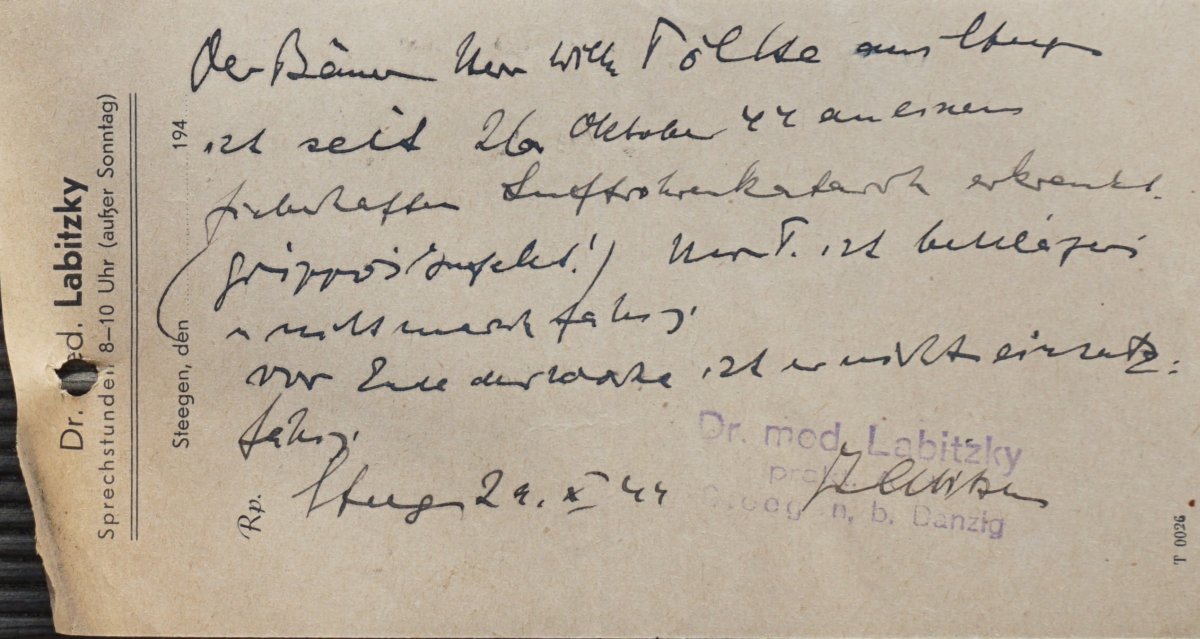 Dr. med. Labitzky
Sprechstunden 8–10 Uhr (außer Sonntag)
Steegen, den 194
Der Bäuer Herr Wilh Töltke aus Steegen
ist seit 26. Oktober 44 an einem
fieberhaften Luftröhrenkatarrh erkrankt.
(grippöser Infekt!) Herr T. ist bettlägerig
u nicht marschfähig.
vor Ende der Woche ist er nicht einsatz-
fähig.
Rp.
Steegen 29. X 44
Dr. med. Labitzky
prakt.
Steegen, b. Danzig
T 0026